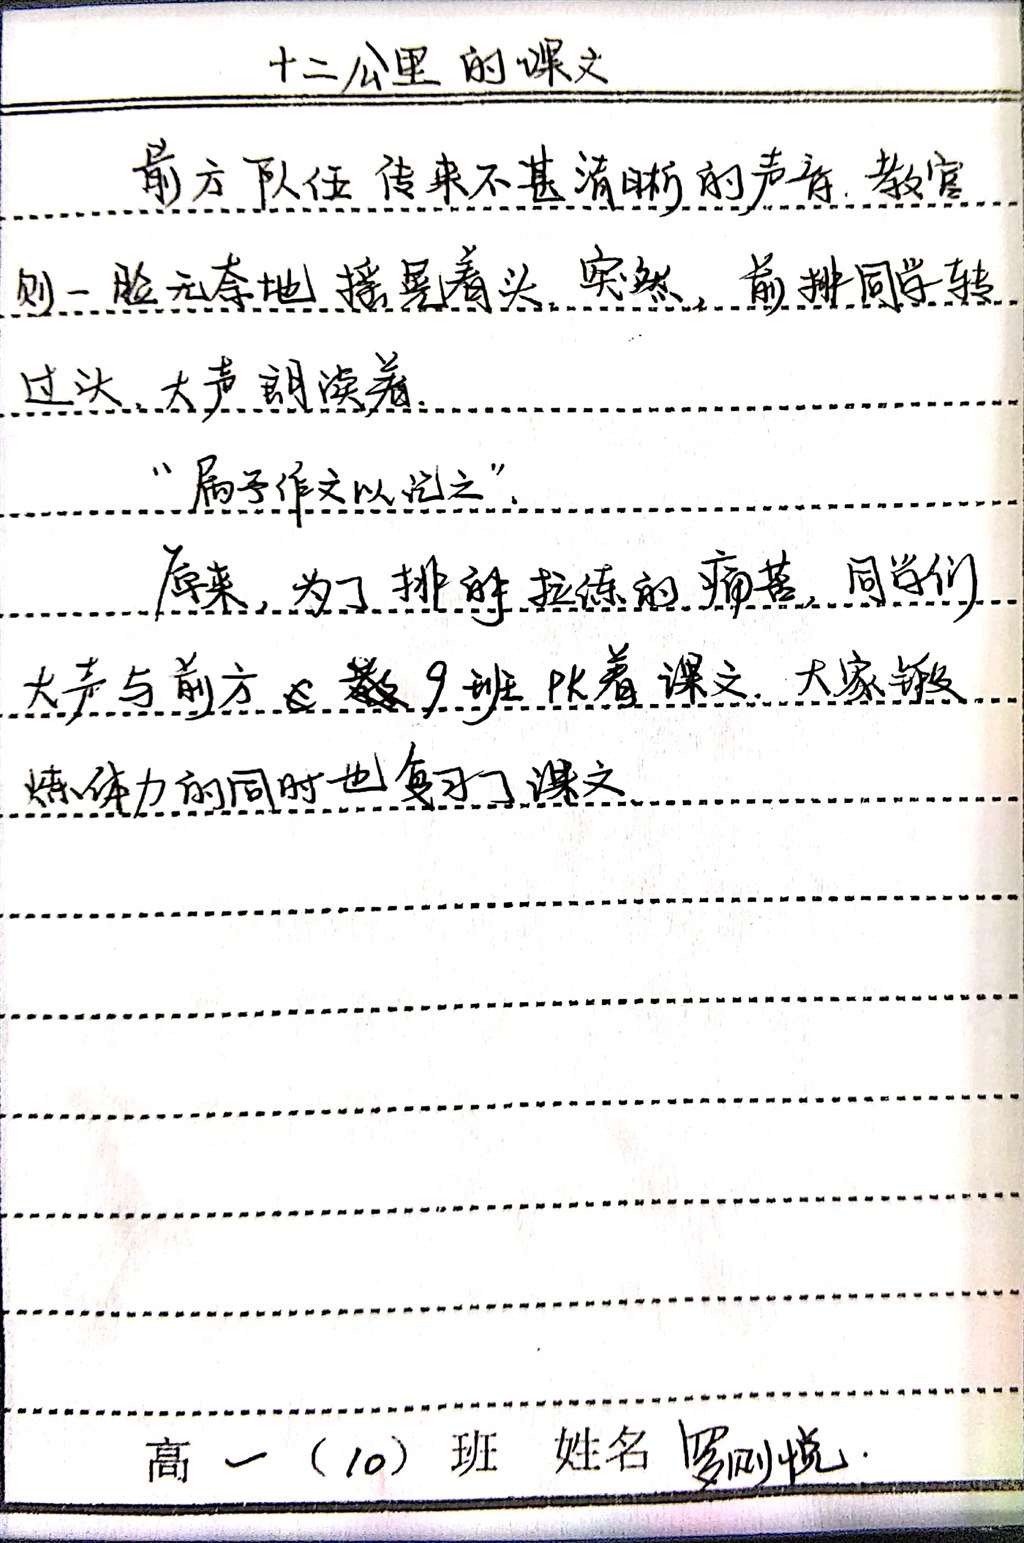 十二公里的课文
前方队伍传来不甚清晰的声音.教官
则一脸无奈地摇晃着头.突然,前排同学转
过头,大声朗读着.
“属予作文以记之”.
原来,为了排解拉练的痛苦,同学们
大声与前方 9班PK着课文.大家锻
炼体力的同时也复习了课文.
高一(10)班 姓名 罗刚悦.